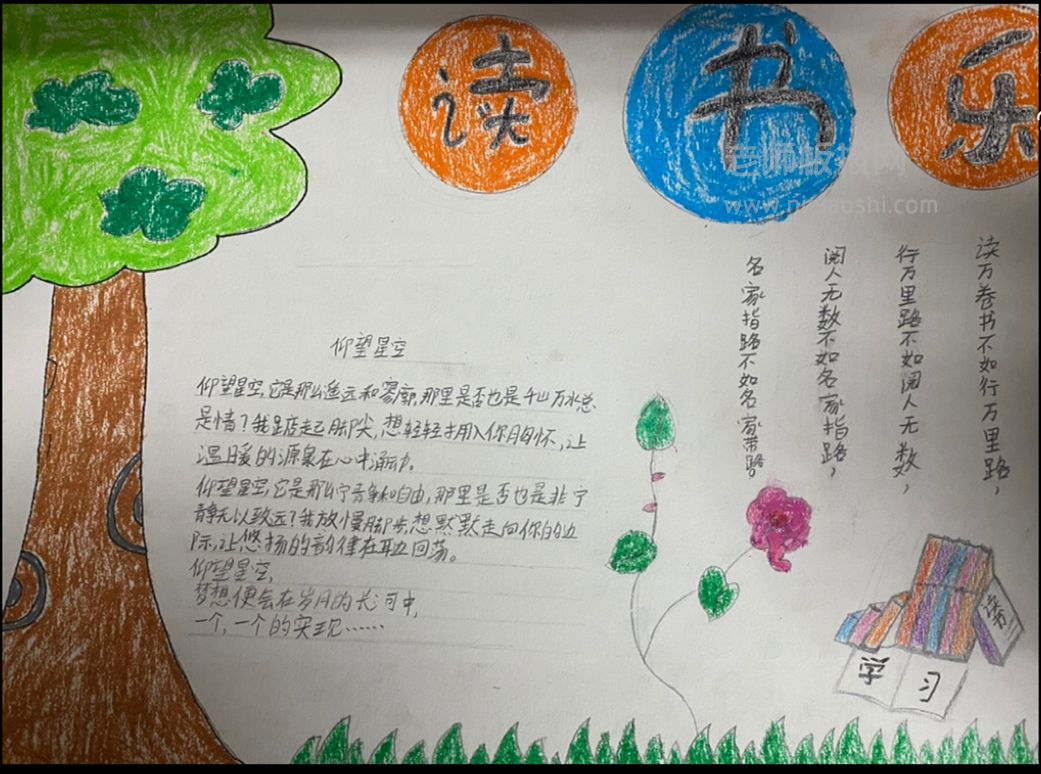 读书乐
老师板报网
www.nnlaoshi.com
读万卷书不如行万里路，
行万里路不如阅人无数，
阅人无数不如名家指路，
名家指路不如名家带路
仰望星空
仰望星空,它是那么遥远和寥廓,那里是否也是千山万水总
是情？我踮起脚尖,想轻轻拥入你胸怀,让
温暖的源泉在心中涌动。
仰望星空,它是那么宁静和自由,那里是否也是非宁
静无以致远？我放慢脚步,想默默走向你的边
际,让悠扬的韵律在耳边回荡。
仰望星空,
梦想便会在岁月的长河中,
一个,一个的实现……
学习